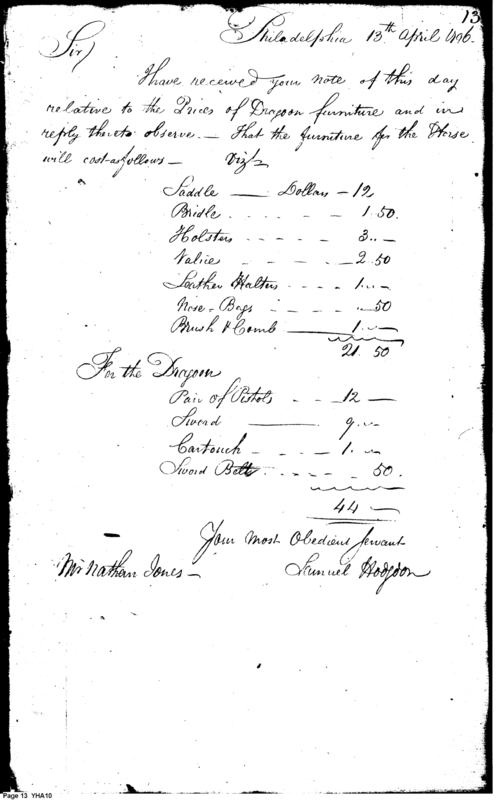 13
Philadelphia 13th April 1796.
Sir)
I have received your note of this day
relative to the Prices of Dragoon furniture and in
reply thereto observe. — That the furniture for the Horse
will cost as follows — Vizt
Saddle — Dollars — 12
Bridle - - - - - 1.50.
Holsters - - - - - 3.. —
Valice - - - - - 2.50
Leather Halters - - - - 1.... —
Nose-Bags - - - - - ..50
Brush & Comb — 1... —
21.50
For the Dragoon
Pair of Pistols - - - 12 —
Sword — 9..—
Cartouch - - - - 1. —
Sword Belt - - - - - 50.
44 —
Your most Obedient Servant
Mr Nathan Jones — Samuel Hodgdon
Page 13 YHA10